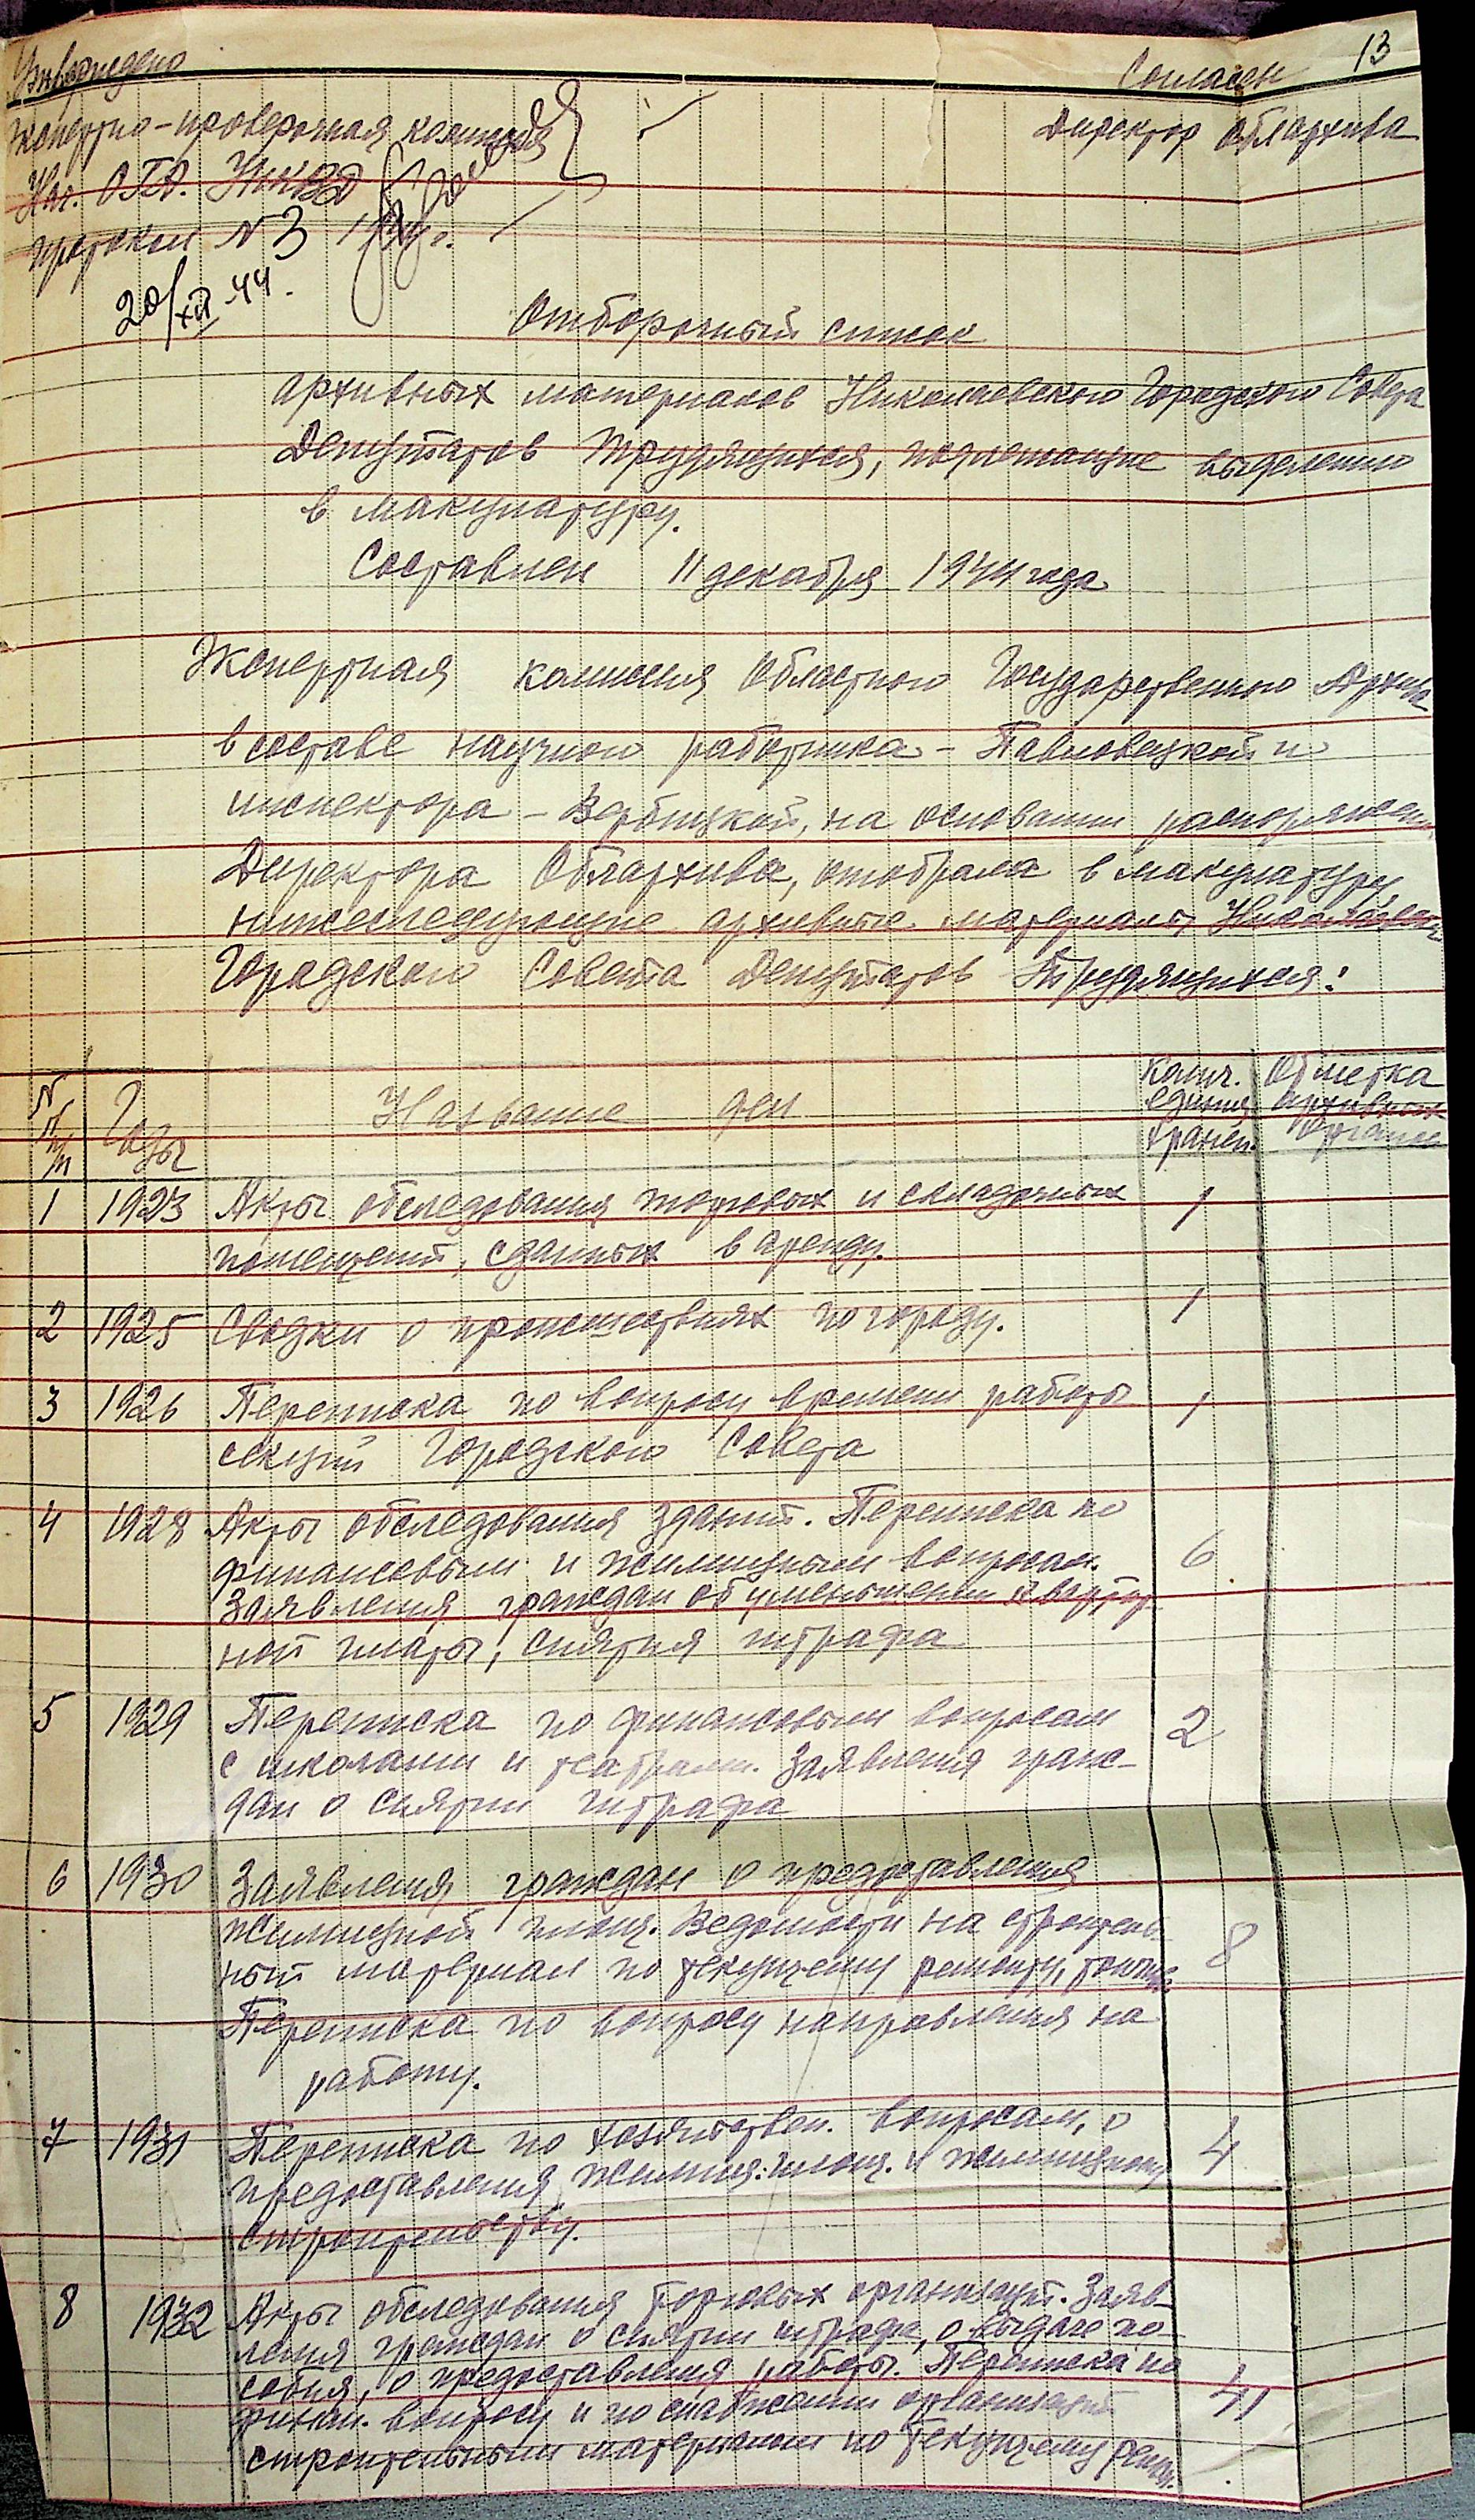 13
Утверждено
Согласен
Экспертно-проверочная комиссия
Директор Облархива
Нач. О.Г.А. УНКВД
протокол № 3 1944 г.
20/XII-44.
Отборочный список
архивных материалов Николаевского Городского Совета
Депутатов Трудящихся, подлежащие выделению
в макулатуру.
Составлен 11 декабря 1944 года
Экспертная комиссия Областного Государственного Архива
в составе научного работника - Павловецкой и
инспектора - Вербицкой, на основании распоряжени
Директора Облархива, отобрала в макулатуру
нижеследующие архивные материалы Николаевск.
Городского Совета Депутатов Трудящихся:
№ п/п Годы Название дел Колич. единиц хранен. Отметка архивных органов
1 1923 Акты обследования торговых и складочных 1
помещений, сданных в аренду.
2 1925 Сводки о происшествиях по городу. 1
3 1926 Переписка по вопросу времени работы 1
секций Городского Совета
4 1928 Акты обследования зданий. Переписка по
финансовым и жилищным вопросам. 6
Заявления граждан об уменьшении квартир-
ной платы, снятия штрафа
5 1929 Переписка по финансовым вопросам 2
с школами и театрами. Заявления граж-
дан о снятии штрафа
6 1930 Заявления граждан о предоставления
жилищной площ. Ведомости на строитель- 8
ный материал по текущему ремонту,
Переписка по вопросу направления на
работу.
7 1931 Переписка по хозяйствен. вопросам, о 4
предоставления жилищ. площ. и жилищному
строительству.
8 1932 Акты обследования торговых организаций. Заяв-
ления граждан о снятии штрафа, о выдаче по-
собия, о предоставления работы. Переписка по
финан. вопросу и по снабжении организаций 41
строительным материалом по текущему ремон.